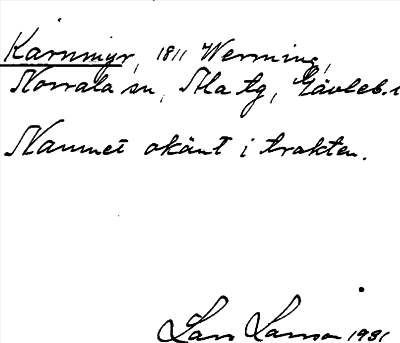 Kärnmyr, 1811 Werming,
Norrala sn, Ala tg, Gävleb.l
Namnet okänt i trakten.
Lars Larsson 1931